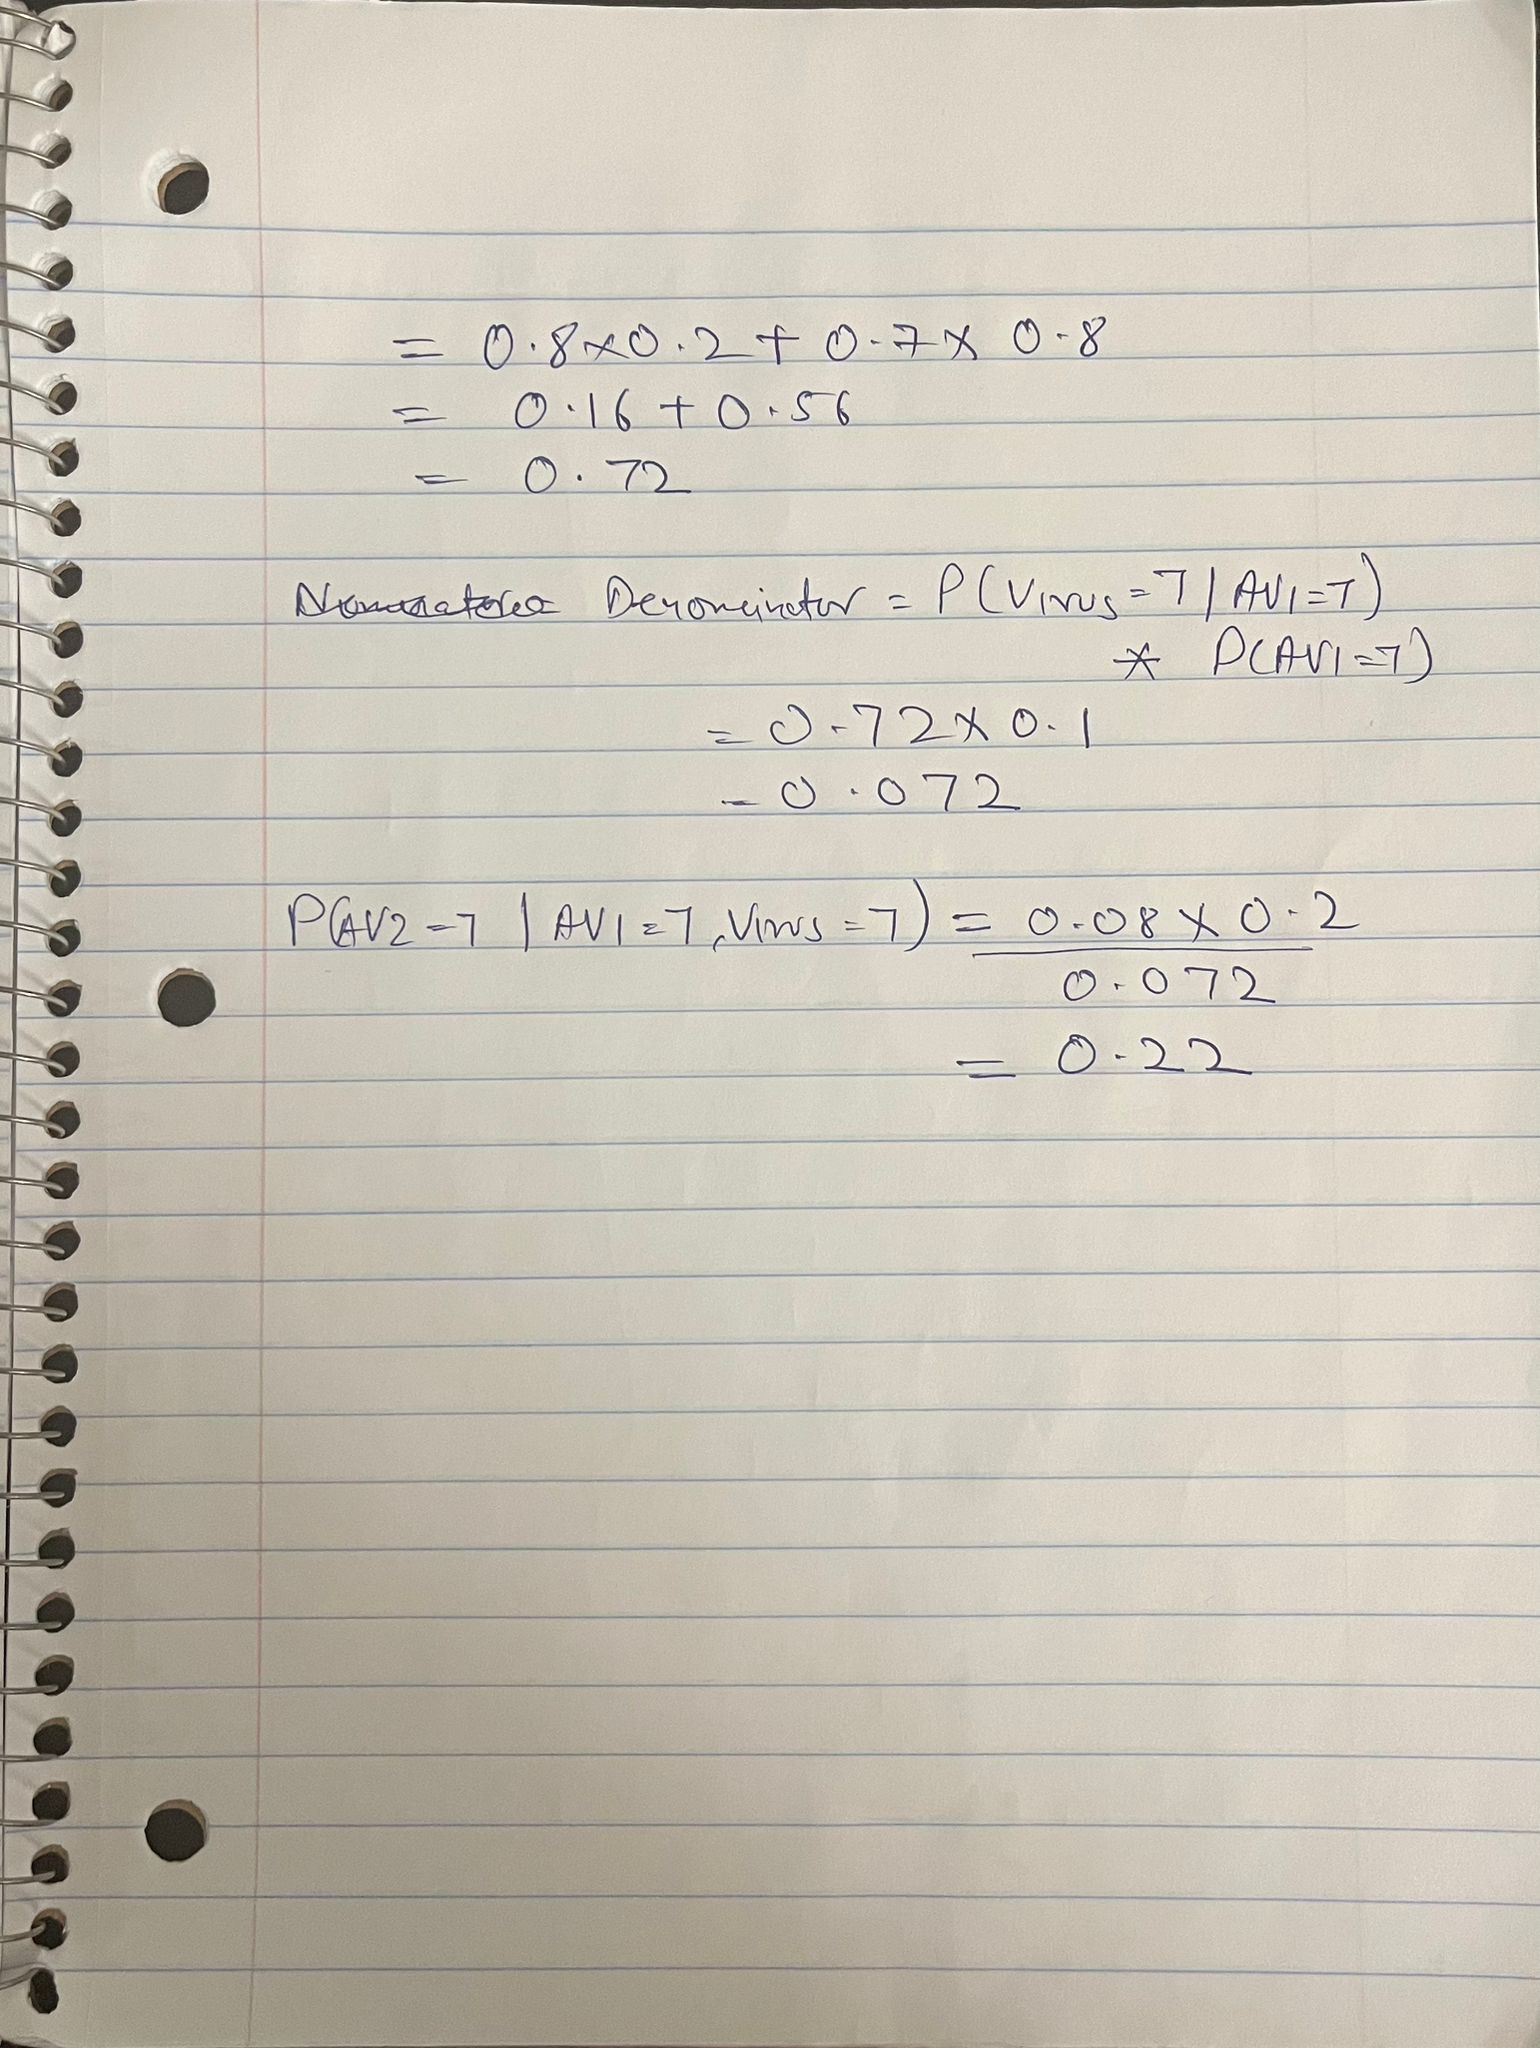 = 0.8×0.2 + 0.7× 0.8
= 0.16 + 0.56
= 0.72
Denominator = P(Virus=T | AV1=T)
* P(AV1=T)
= 0.72×0.1
= 0.072
P(AV2=T | AV1=T, Virus=T) = 0.08 × 0.2
0.072
= 0.22